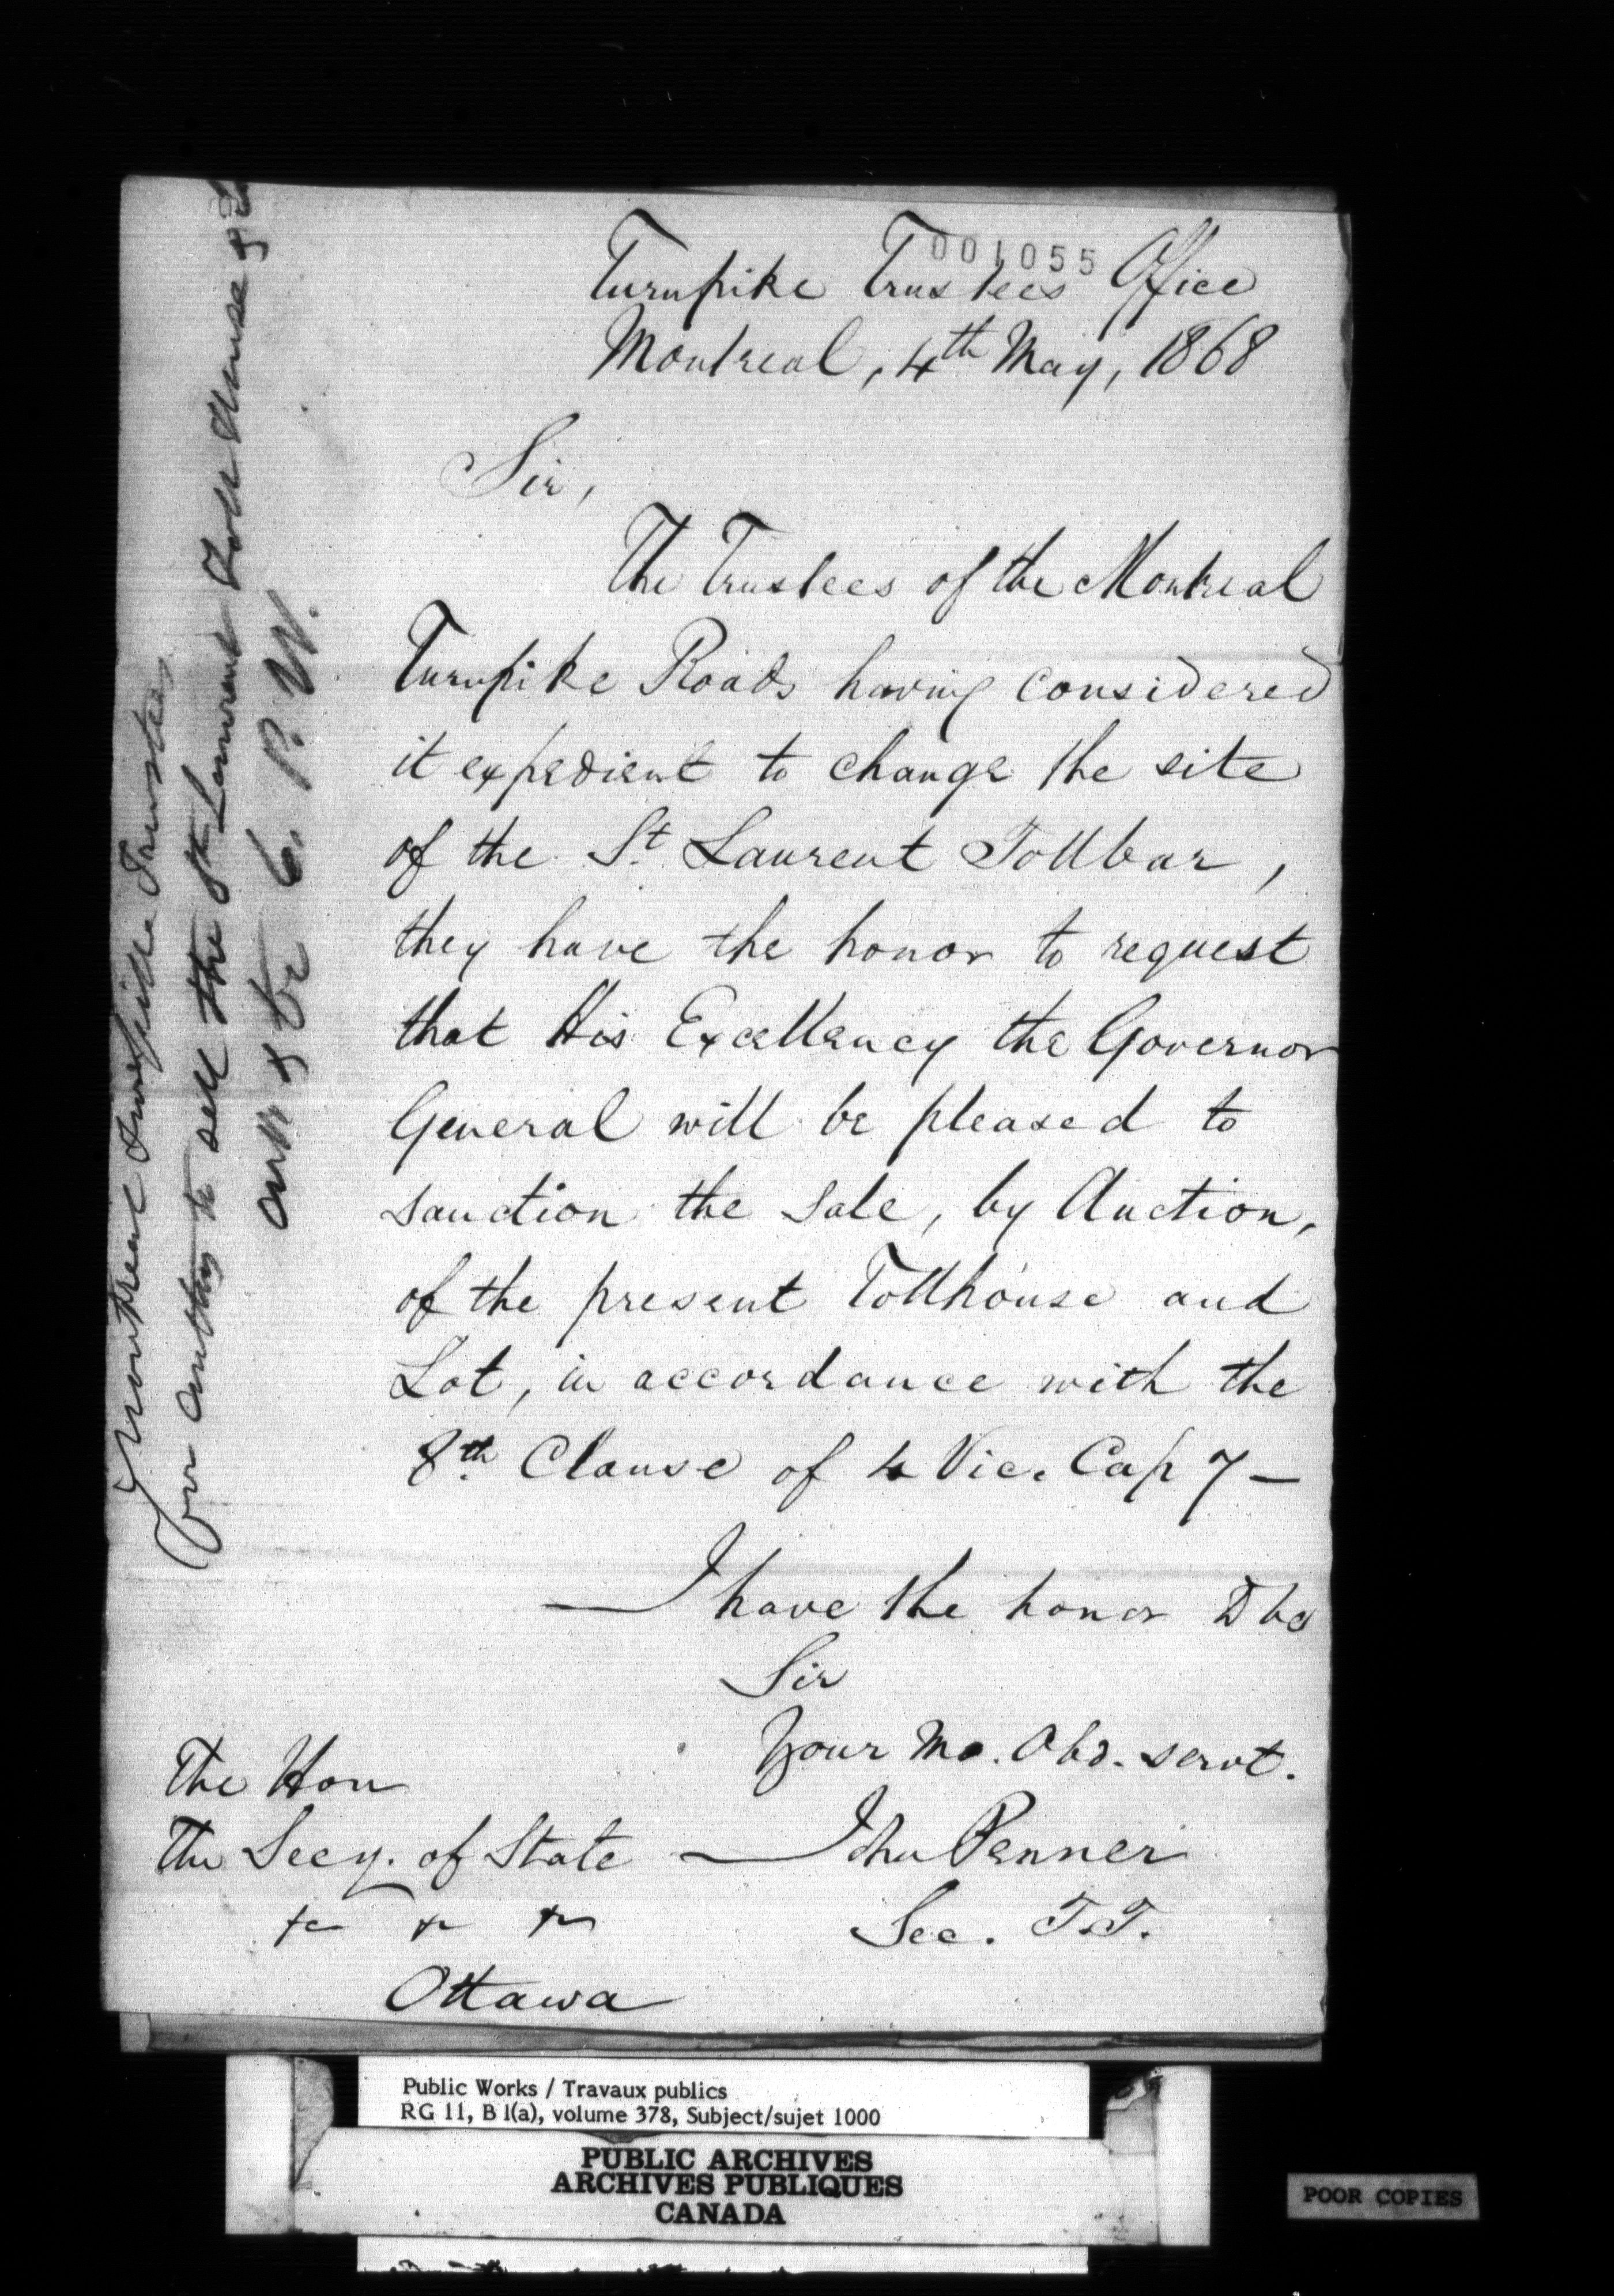 001055
Turnpike Trustees Office
Montreal, 4th May, 1868
Sir,
The Trustees of the Montreal
Turnpike Roads having considered
it expedient to change the site
of the St. Laurent Tollbar,
they have the honor to request
that His Excellency the Governor
General will be pleased to
sanction the Sale, by Auction,
of the present Tollhouse and
Lot, in accordance with the
8th Clause of 4 Vic. Cap 7 —
I have the honor to be
Sir
Your Mo. Obd. servt.
John Penner
Sec. T.T.
The Hon
The Secy. of State
&c &c &c
Ottawa
Montreal Turnpike Trustees
for authy to sell the St Laurent Toll House &
to C. P. W.
Public Works / Travaux publics
RG 11, B 1(a), volume 378, Subject/sujet 1000
PUBLIC ARCHIVES
ARCHIVES PUBLIQUES
CANADA
POOR COPIES